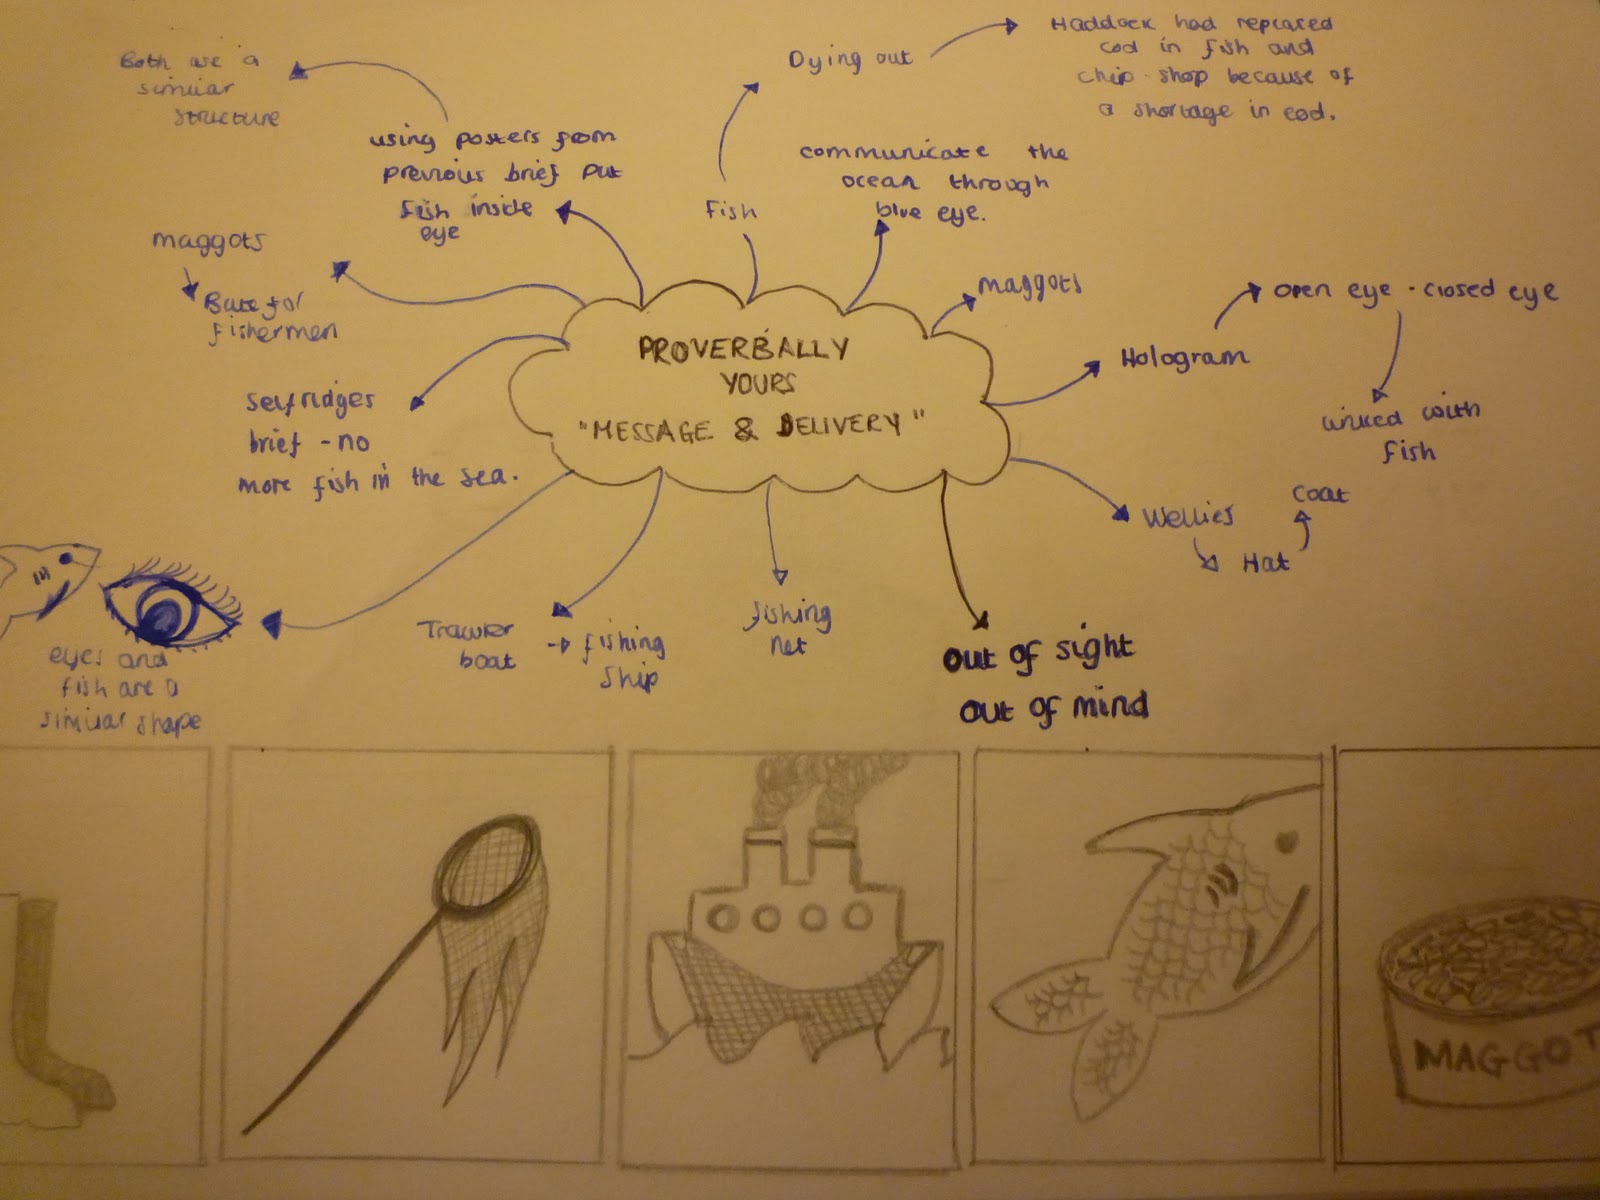 Both are a
similar
structure
using posters from
previous brief put
fish inside
eye
Dying out
Haddock had replaced
cod in fish and
chip shop because of
a shortage in cod.
Fish
communicate the
ocean through
blue eye.
maggots
Bate for
fishermen
maggots
Hologram
open eye - closed eye
linked with
fish
PROVERBALLY
YOURS
"MESSAGE & DELIVERY"
Selfridges
brief - no
more fish in the sea.
Wellies
Hat
coat
eyes and
fish are a
similar shape
Trawler
boat
fishing
ship
fishing
net
out of sight
out of mind
MAGGOT